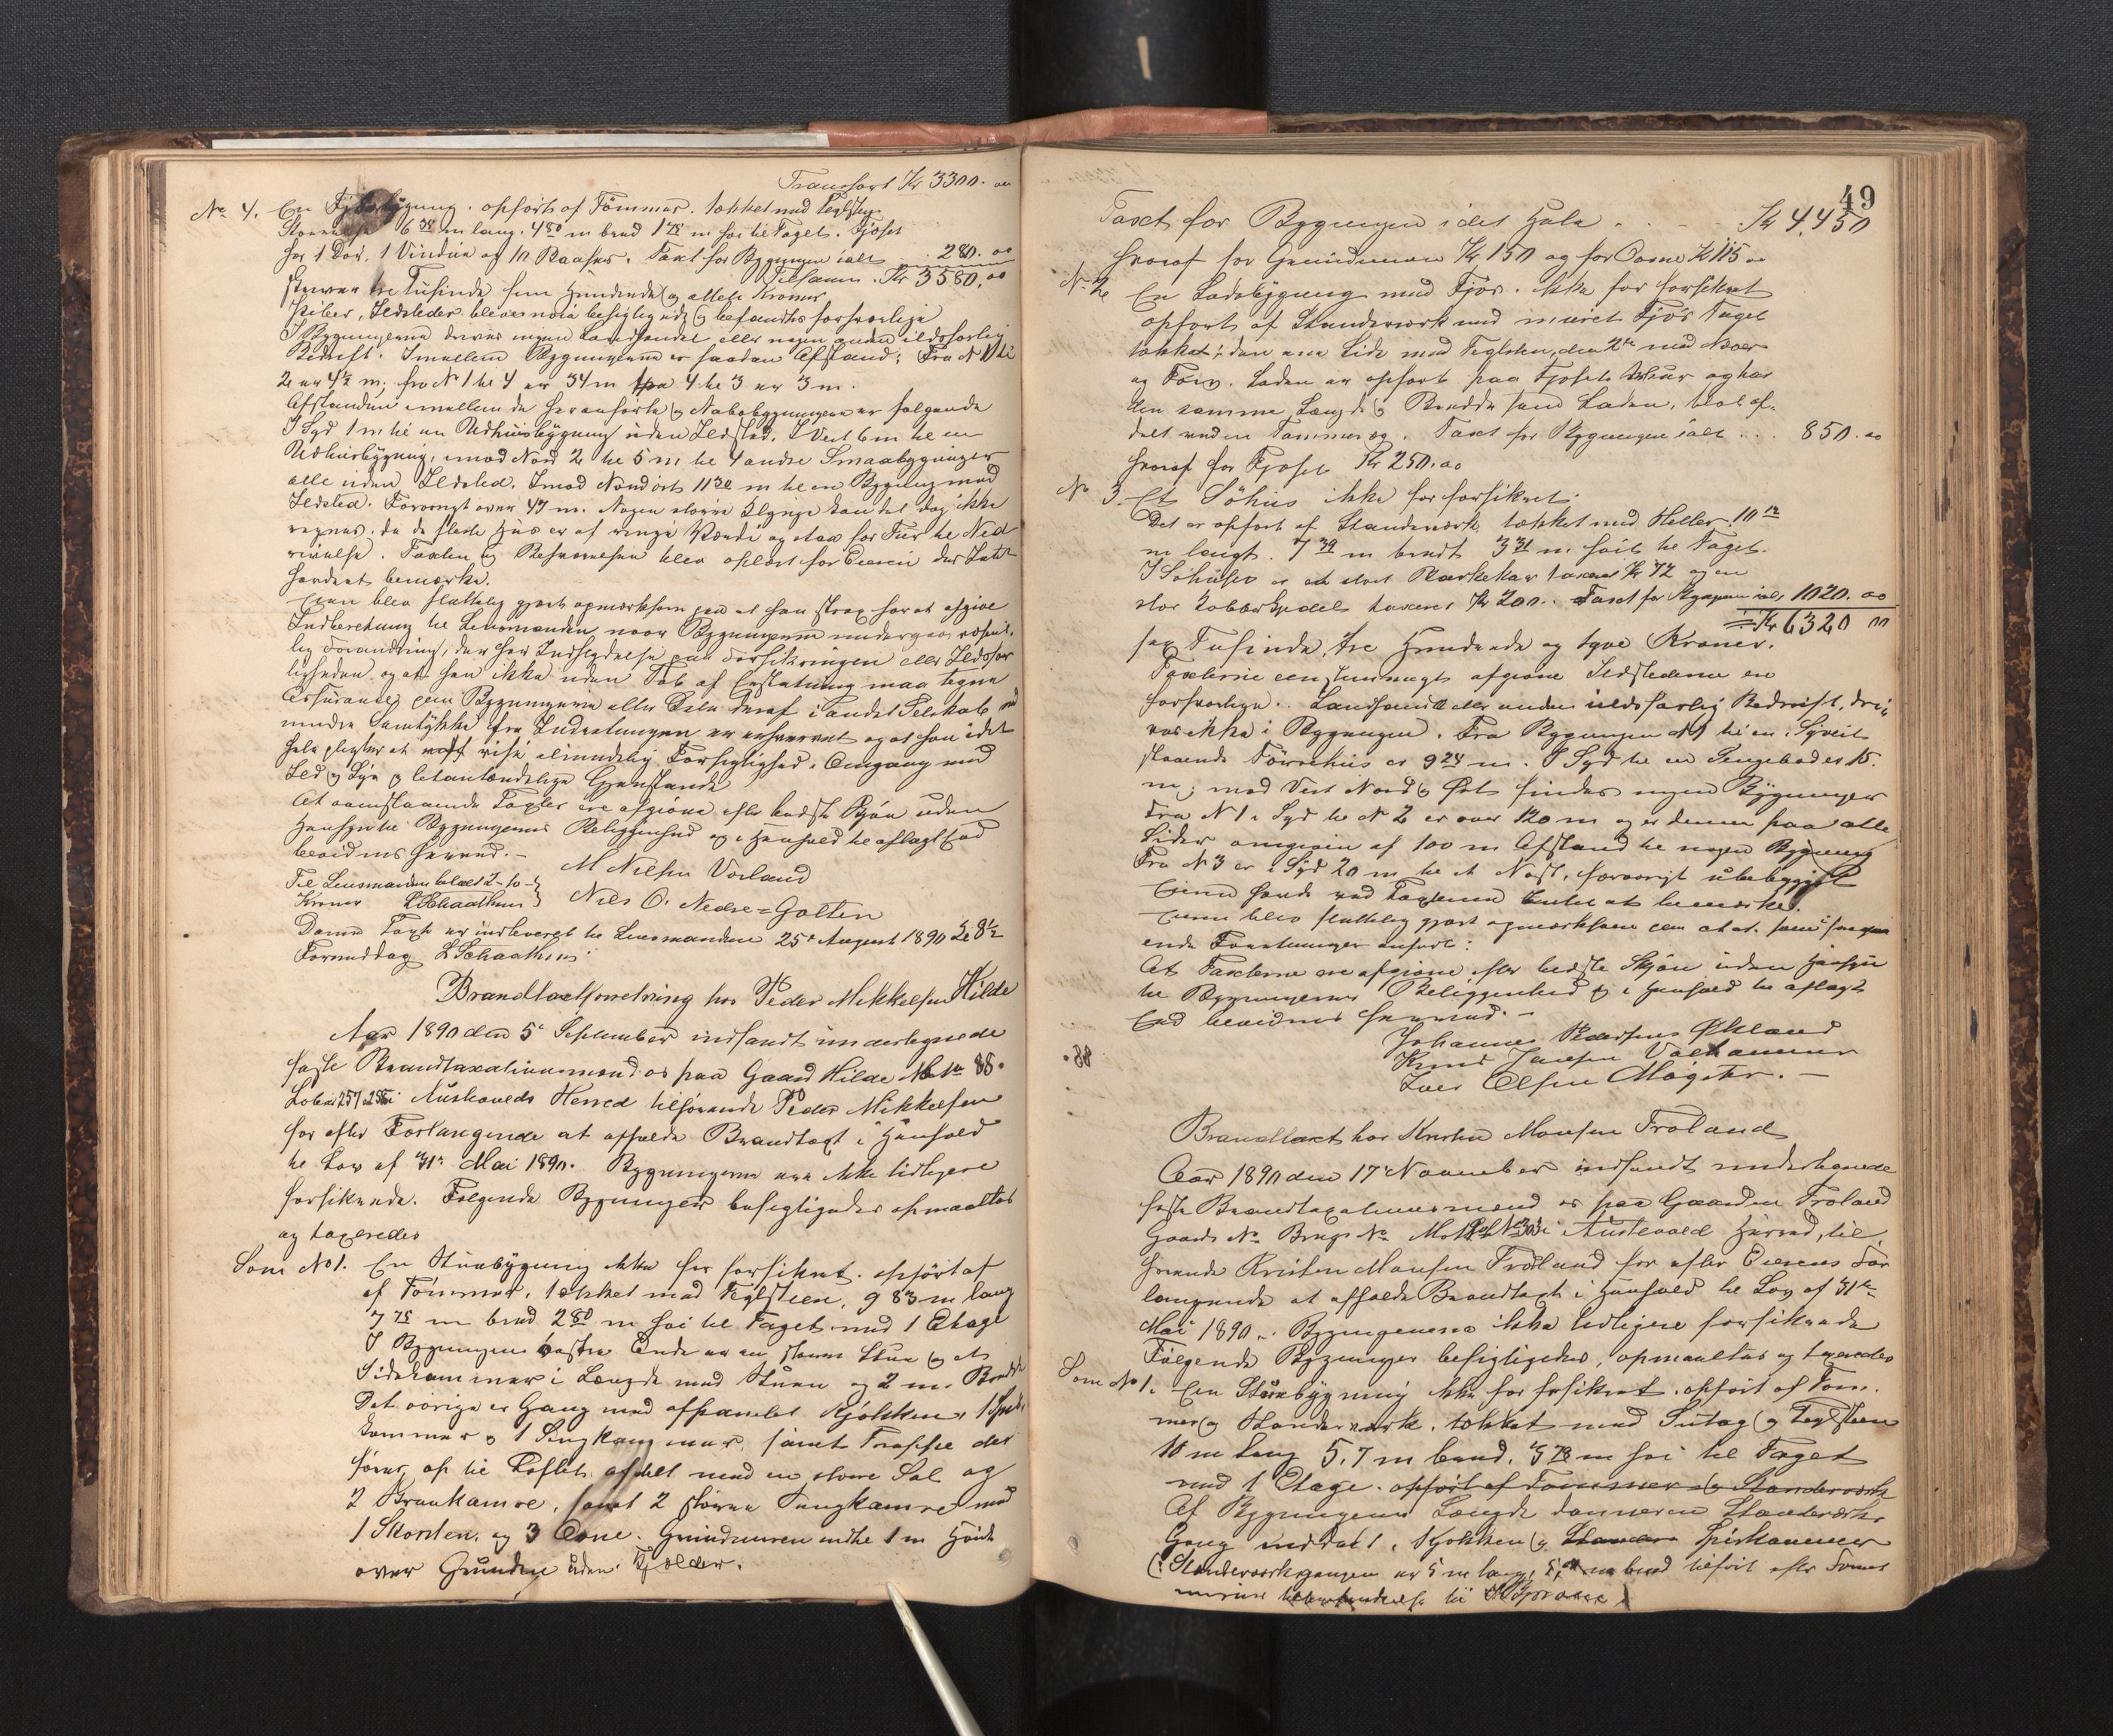 Transport Kr 3300. 00
No 4. En Fjøsbygning. opført af Tømmer. tækket med Teglsten
Størrelse 6 38 m lang. 4 80 m bred 1 78 m høi til Taget. Fjøset
har 1 Dør. 1 Vindue og 10 Baaser. Taxt for Bygningen ialt . . 280. 00
Tilsamm. Kr 3580. 00
skriver tre Tusinde fem Hundrede og otteti Kroner
Piber, Ildsteder bleve nøie besigtigede og befandtes forsvarlige
I Bygningerne drives ingen Landhandel eller nogen anden ildsfarlig
Bedrift. Imellem Bygningerne er saadan Afstand: Fra No 1 til
2 er 4½ m; fra No 1 til 4 er 34 m fra 4 til 3 er 3 m.
Afstanden imellem de heranførte og Nabobygningerne er følgende
I Syd 1 m til en Udhusbygning uden Ildsted. I Vest 6 m til en
Udhusbygning, imod Nord 2 til 5 m til 4 andre Smaabygninger
alle uden Ildsted. Imod Nordost 11 30 m til en Bygning med
Ildsted. Forøvrigt over 47 m. Nogen større Klynge kan det dog ikke
regnes. da de fleste Huse er af ringe Værdi og staa for Tur til Ned
rivelse. Taxten og Beskrivelsen blev oplæst for Eieren der Intet
havde at bemærke.
Eieren blev skriftlig gjort opmærksom paa at han strax har at afgive
Indberetning til Lensmanden naar Bygningerne undergaar væsent-
lig Forandring, der har Indflydelse paa Forsikringen eller Ildsfar
ligheden og at han ikke uden Tab af Erstatning maa tegne
Assurance paa Bygningerne eller Dele deraf i andet Selskab med
mindre Samtykke fra Indretningen er erhvervet og at han i det
hele pligter at vise almindelig Forsigtighed i Omgang med
Ild og Lys og letantændelige Gjenstande
At ovenstaaende Taxter ere afgivne efter bedste Skjøn uden
Hensyn til Bygningernes Beliggenhed og i Henhold til aflagt Eed
bevidnes herved. –
M Nilsen Vorland
Til Lensmanden betalt 2-10-
Kroner L Schaathun
Nils O. Nedre=Golten
Denne Taxt er indleveret til Lensmanden 25de August 1890 Kl 8½
Formiddag L Schaathun
Brandtaxtforretning hos Peder Mikkelsen Hilde
Aar 1890 den 5te September indfandt undertegnede
faste Brandtaxationsmænd os paa Gaard Hilde Mat No 88.
Løbe No 257 258 i Austevolds Herred tilhørende Peder Mikkelsen
for efter Forlangende at afholde Brandtaxt i Henhold
til Lov af 31te Mai 1890. Bygningerne ere ikke tidligere
forsikrede. Følgende Bygninger besigtigedes opmaaltes
og taxeredes
Som No 1. En Stuebygning ikke før forsikret. opført af
af Tømmer. tækket med Teglsteen, 9 83 m lang
7 75 m bred 2 80 m høi til Taget med 1 Etage
I Bygningens østre Ende er en større Stue og et
Sidekammer i Længde med Stuen og 2 m. Bredde
Det øvrige er Gang med afpanelet Kjøkken, 1 Spis-
kammer og 1 Sengkammer, samt Trappe der
fører op til Loftet afdelt med en større Sal og
2 Bræukamre, samt 2 større Sengkamre med
1 Skorsten, og 3 Ovne. Grundmuren indtil 1 m Høide
over Grunden uden Kjelder.
49
Taxt for Bygningen i det Hele . . . Kr 4,450
hvoraf for Grundmuren Kr 150 og for Ovne Kr 115 00
No 2 En Ladebygning med Fjøs. ikke før forsikret
opført af Standerværk med muret Fjøs Taget
tækket i den ene Side med Teglsten, den 2den med Næver
og Torv. Laden er opført paa Fjøsets Mur og har
den samme Længde og Bredde som Laden, blot af-
delt ved en Tømmeræg. Taxt for Bygningen ialt . . . 850. 00
hvoraf for Fjøset Kr 250. 00
No 3. Et Søhus ikke før forsikret.
Det er opført af Standerværk, tækket med Heller. 10 12
m langt. 7 39 m bredt 3 31 m høit til Taget.
I Søhuset er et stort Barkekar taxeret Kr 72 og en
stor Kobberkjedel taxeret Kr 200.. Taxt for Bygningen ialt 1020. 00
= Kr 6320 00
sex Tusinde, tre Hundrede og tyve Kroner.
Taxterne eenstemmigt afgivne Ildstederne ere
forsvarlige. Landhandel eller anden ildsfarlig Bedrift, dri-
ves ikke i Bygningen. Fra Bygningen No 1 til en i Sydvest
staaende Tørrehus er 9 24 m. I Syd til en Sengebod er 15.
m; mod Vest Nord og Øst findes ingen Bygninger
Fra No 1 i Syd til No 2 er over 120 m og er denne paa alle
Sider omgiven af 100 m Afstand til nogen Bygning
Fra No 3 er i Syd 20 m til et Nøst, forøvrigt ubebygget
Eieren havde ved Taxterne Intet at bemærke.
Eieren blev skriftlig gjort opmærksom paa at at. som i foregaa
ende Forretninger anført:
At Taxterne ere afgivne efter bedste Skjøn uden Hensyn
til Bygningernes Beliggenhed og i Henhold til aflagt
Eed bevidnes herved. –
Johannes Pedersen Økland
Knud Jansen Valhammer
Iver Olsen Møgster. –
Brandtaxt hos Kristen Monsen Frøland
Aar 1890 den 17de November indfandt undertegnede
faste Brandtaxationsmænd os paa Gaarden Frøland
Gaards No Brugs No i Austevold Herred, til-
hørende Kristen Monsen Frøland for efter Eierens For
langende at afholde Brandtaxt i Henhold til Lov af 31te
Mai 1890. Bygningerne ere ikke tidligere forsikrede
Følgende Bygninger besigtigedes, opmaaltes og taxeredes
Som No 1. En Stuebygning ikke før forsikret. opført af Tøm-
mer og Standerværk. tækket med Sutag og Teglsteen
10 m lang 5,7 m bred. 3 78 m høi til Taget
med 1 Etage. opført af Tømmer og Standerværk
Af Bygningens Længde danner en Standerværks
Gang inddelt i Kjøkken og Spiskammer
(: Standerværksgangen er 5 m lang, m bred tilføit efter Tømmer